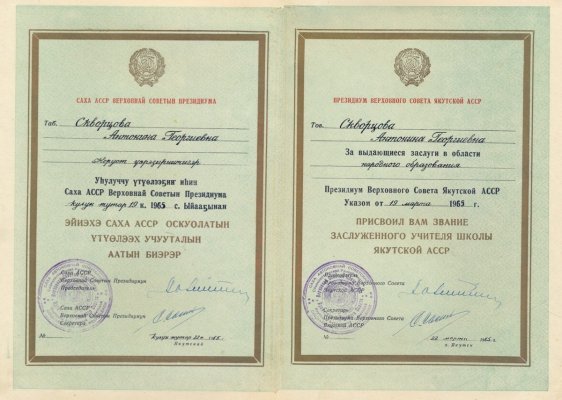 САХА АССР ВЕРХОВНАЙ СОВЕТЫН ПРЕЗИДИУМА
Таб. Скворцова
Антонина Георгиевна
норуот үөрэҕириитигэр
Уһулуччу үтүөлээҕин иһин
Саха АССР Верховнай Советын Президиума
кулун тутар 19 к. 1965 с. Ыйааҕынан
ЭЙИЭХЭ САХА АССР ОСКУОЛАТЫН
ҮТҮӨЛЭЭХ УЧУУТАЛЫН
ААТЫН БИЭРЭР
Саха АССР
Верховнай Советын Президиумун
Председателэ
Саха АССР
Верховнай Советын Президиумун
Секретара
№
Кулун тутар 22 к. 1965 с.
Якутскай
ПРЕЗИДИУМ ВЕРХОВНОГО СОВЕТА ЯКУТСКОЙ АССР
Тов. Скворцова
Антонина Георгиевна
За выдающиеся заслуги в области
народного образования
Президиум Верховного Совета Якутской АССР
Указом от 19 марта 1965 г.
ПРИСВОИЛ ВАМ ЗВАНИЕ
ЗАСЛУЖЕННОГО УЧИТЕЛЯ ШКОЛЫ
ЯКУТСКОЙ АССР
Президиума Верховного Совета
Якутской АССР
Секретарь
Президиума Верховного Совета
Якутской АССР
№
22 марта 1965 г.
г. Якутск